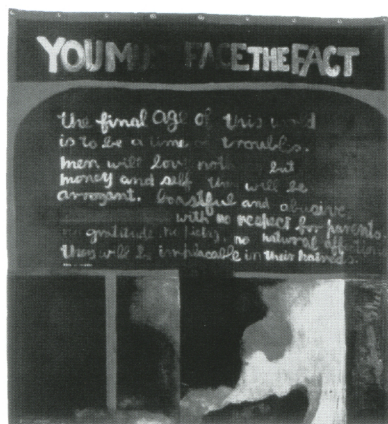 YOU MUST FACE THE FACT
the final age of this world
is to be a time of troubles.
men will love nothing but
money and self they will be
arrogant, boastful and abusive,
with no respect for parents,
no gratitude, no piety, no natural affection
they will be implacable in their hatreds.